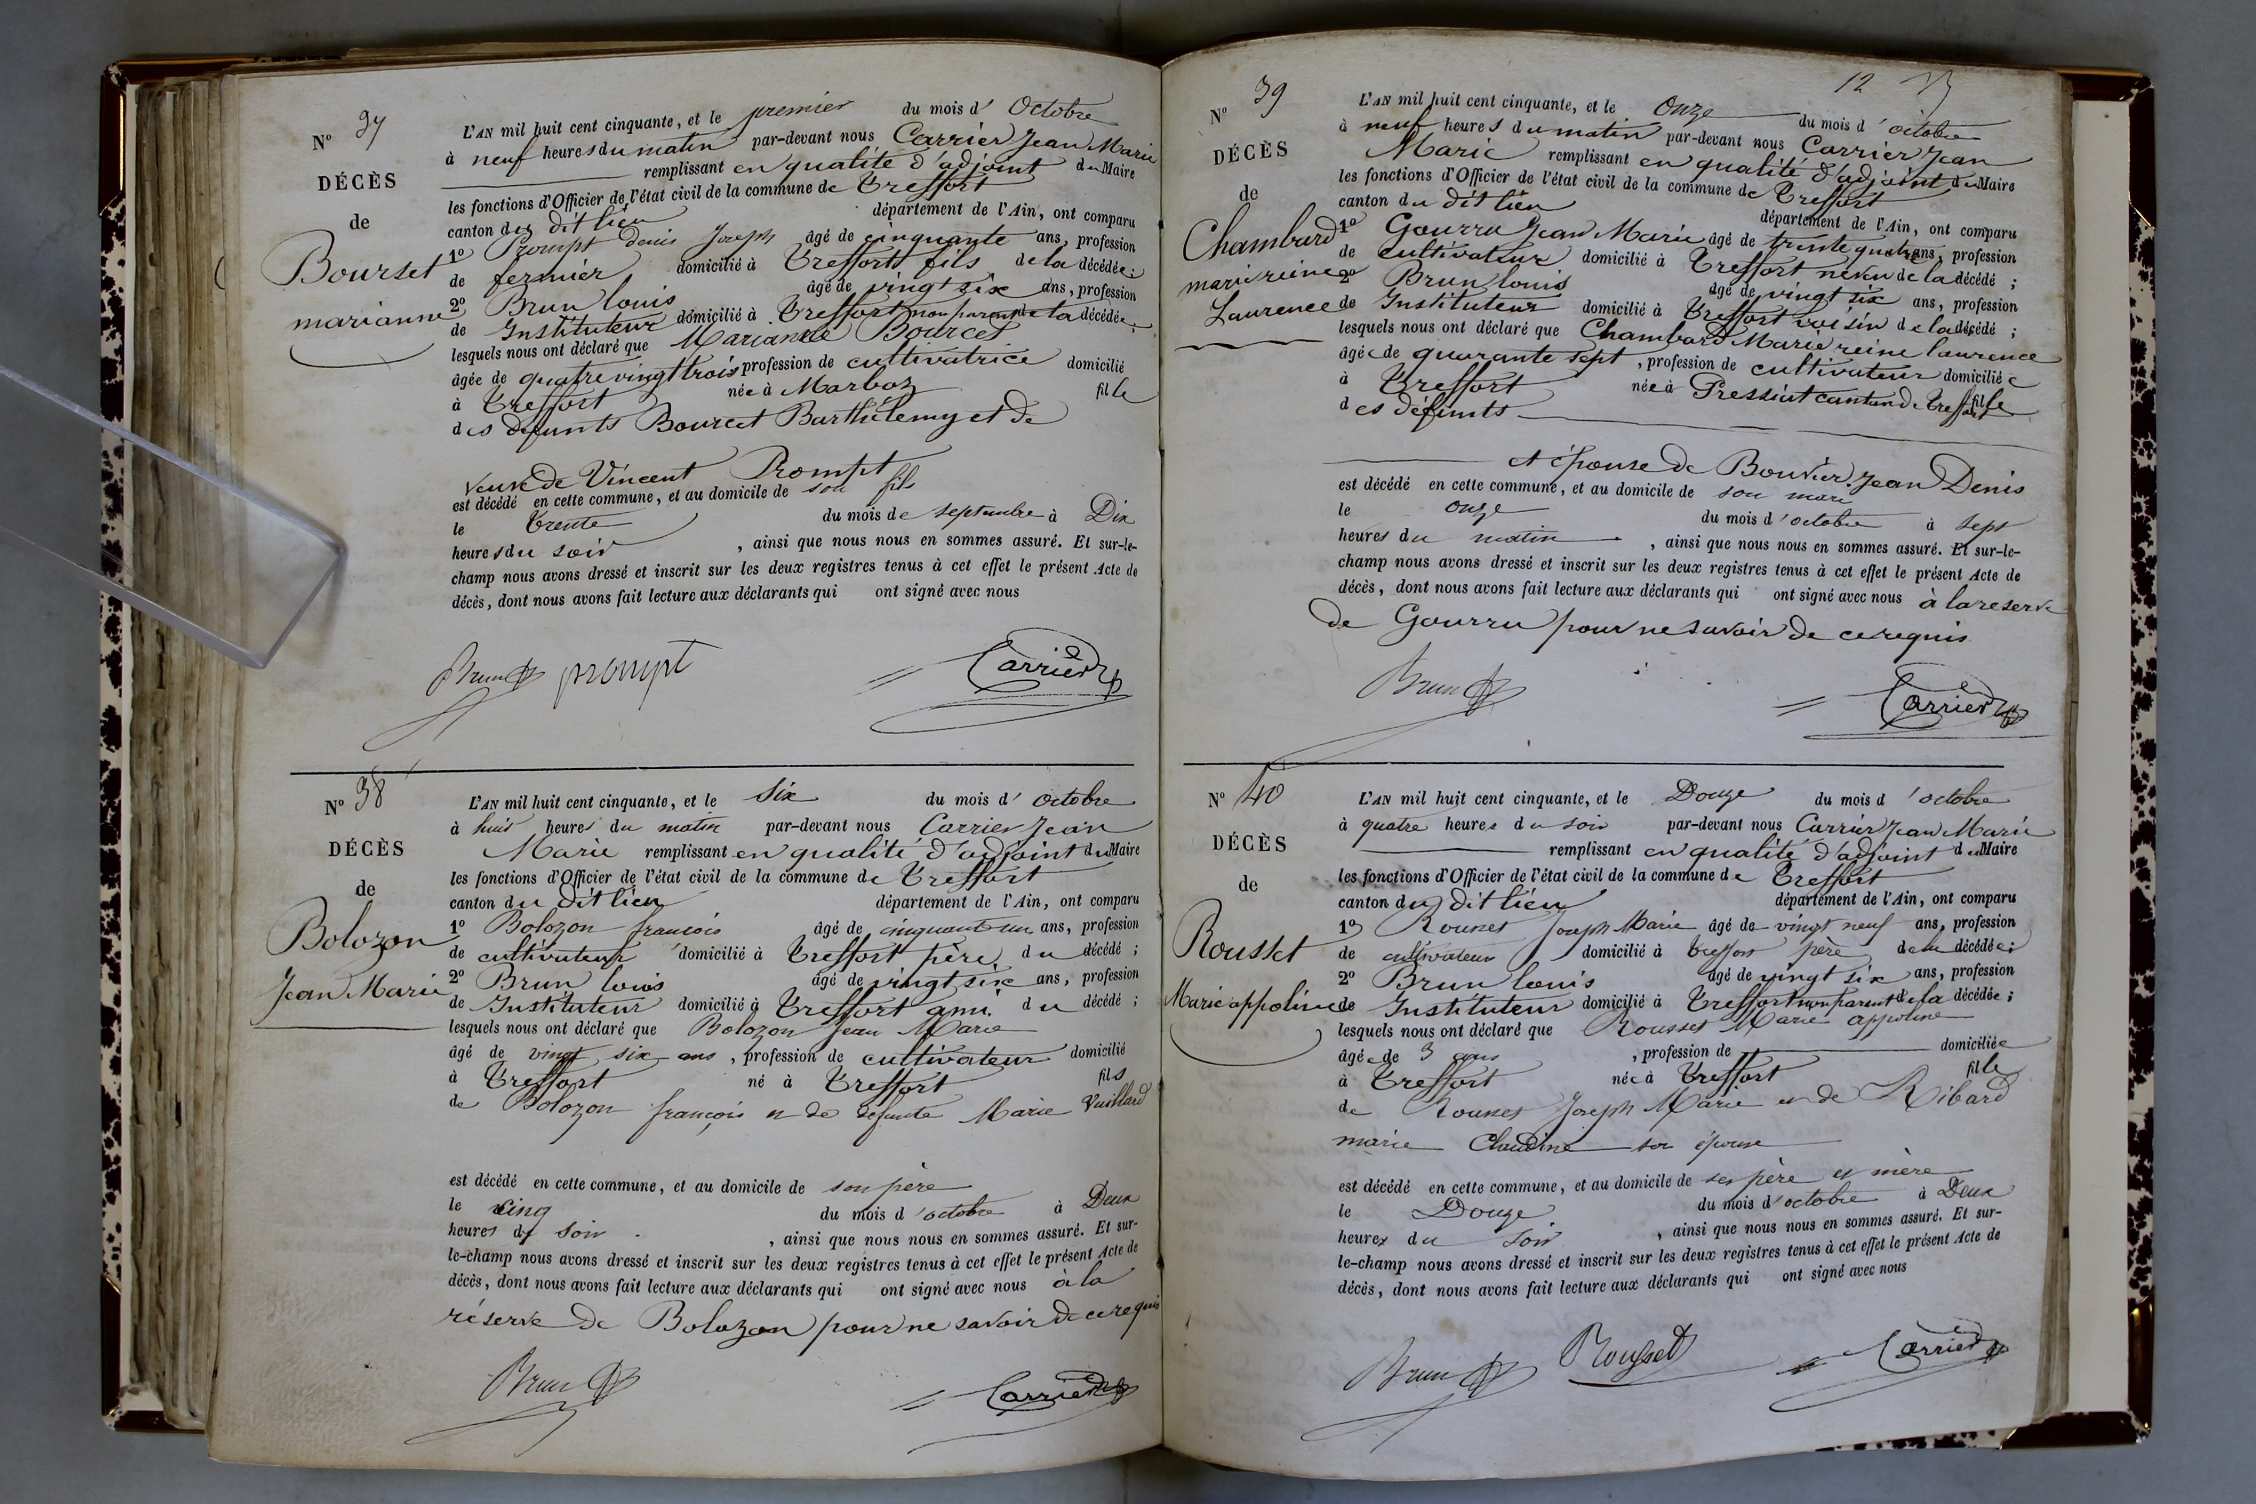 Nº 37
DÉCÈS
de
Bourset
marianne
L'AN mil huit cent cinquante, et le premier du mois d' Octobre
à neuf heures du matin par-devant nous Carrier Jean Marie
remplissant en qualité d'adjoint du Maire
les fonctions d'Officier de l'état civil de la commune de Treffort
canton du dit lieu département de l'Ain, ont comparu
1º Prompt denis Joseph âgé de cinquante ans, profession
de fermier domicilié à Treffort fils de la décédée;
2º Brun louis âgé de vingt six ans, profession
de Instituteur domicilié à Treffort non parent de la décédée;
lesquels nous ont déclaré que Marianne Bourcet
âgée de quatre vingt trois profession de cultivatrice domicilié
à Treffort née à Marboz fille
des défunts Bourcet Barthélemy et de
Veuve de Vincent Prompt
est décédé en cette commune, et au domicile de son fils
le trente du mois de septembre à Dix
heures du soir , ainsi que nous nous en sommes assuré. Et sur-le-
champ nous avons dressé et inscrit sur les deux registres tenus à cet effet le présent Acte de
décès, dont nous avons fait lecture aux déclarants qui ont signé avec nous
Brun prompt Carrier
Nº 38
DÉCÈS
de
Bolozon
Jean Marie
L'AN mil huit cent cinquante, et le Six du mois d' octobre
à huit heures du matin par-devant nous Carrier Jean
Marie remplissant en qualité d'adjoint du Maire
les fonctions d'Officier de l'état civil de la commune de Treffort
canton du dit lieu département de l'Ain, ont comparu
1º Bolozon francois âgé de cinquante un ans, profession
de cultivateur domicilié à Treffort père du décédé ;
2º Brun louis âgé de vingt six ans, profession
de Instituteur domicilié à Treffort ami du décédé ;
lesquels nous ont déclaré que Bolozon Jean Marie
âgé de vingt six ans , profession de cultivateur domicilié
à Treffort né à Treffort fils
de Bolozon françois et de défunte Marie Vuillard
est décédé en cette commune, et au domicile de son père
le cinq du mois d'octobre à Deux
heures du soir , ainsi que nous nous en sommes assuré. Et sur-
le-champ nous avons dressé et inscrit sur les deux registres tenus à cet effet le présent Acte de
décès, dont nous avons fait lecture aux déclarants qui ont signé avec nous à la
réserve de Bolozon pour ne savoir de ce requis
Brun Carrier
12
Nº 39
DÉCÈS
de
Chambard
marie reine
Laurence
L'AN mil huit cent cinquante, et le Onze du mois d' octobre
à neuf heures du matin par-devant nous Carrier Jean
Marie remplissant en qualité d'adjoint du Maire
les fonctions d'Officier de l'état civil de la commune de Treffort
canton du dit lieu département de l'Ain, ont comparu
1º Gourru Jean Marie âgé de trente quatre ans, profession
de cultivateur domicilié à Treffort neveu de la décédé ;
2º Brun louis âgé de vingt six ans, profession
de Instituteur domicilié à Treffort voisin de la décédé ;
lesquels nous ont déclaré que Chambard Marie reine laurence
âgée de quarante sept , profession de cultivateur domiciliée
à Treffort née à Pressiat canton de Treffort fille
des défunts
et épouse de Bouvier Jean Denis
est décédé en cette commune, et au domicile de son mari
le onze du mois d'octobre à sept
heures du matin , ainsi que nous nous en sommes assuré. Et sur-le-
champ nous avons dressé et inscrit sur les deux registres tenus à cet effet le présent Acte de
décès, dont nous avons fait lecture aux déclarants qui ont signé avec nous à la reserve
de Gourru pour ne savoir de ce requis
Brun Carrier
Nº 40
DÉCÈS
de
Rousset
Marie appoline
L'AN mil huit cent cinquante, et le Douze du mois d 'octobre
à quatre heures du soir par-devant nous Carrier Jean Marie
remplissant en qualité d'adjoint du Maire
les fonctions d'Officier de l'état civil de la commune de Treffort
canton du dit lieu département de l'Ain, ont comparu
1º Rousset Joseph Marie âgé de vingt neuf ans, profession
de cultivateur domicilié à Treffort père de la décédée;
2º Brun louis âgé de vingt six ans, profession
de Instituteur domicilié à Treffort non parent de la décédée ;
lesquels nous ont déclaré que Rousset Marie appoline
âgée de 3 ans , profession de domiciliée
à Treffort née à Treffort fille
de Rousset Joseph Marie et de Ribard
marie Claudine son épouse
est décédé en cette commune, et au domicile de ses père et mère
le Douze du mois d'octobre à Deux
heures du soir , ainsi que nous nous en sommes assuré. Et sur-
le-champ nous avons dressé et inscrit sur les deux registres tenus à cet effet le présent Acte de
décès, dont nous avons fait lecture aux déclarants qui ont signé avec nous
Brun Rousset Carrier